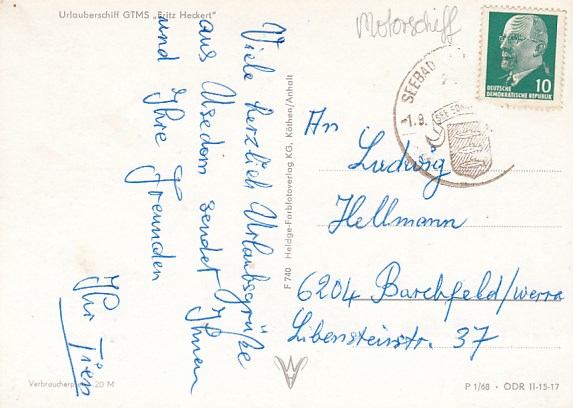 Urlauberschiff GTMS „Fritz Heckert"
Motorschiff
DEUTSCHE
DEMOKRATISCHE REPUBLIK
10
SEEBAD
-1.9.
Viele herzlich Urlaubsgrüße
aus Usedom sendet Ihnen
und Ihre Freunden
Ihr
F 740 Heldge-Farbfotoverlag KG, Köthen/Anhalt
An
Ludwig
Hellmann
6204 Barchfeld/Werra
Libensteinstr. 37
Verbraucherpreis 20 M
P 1/68 • ODR II-15-17